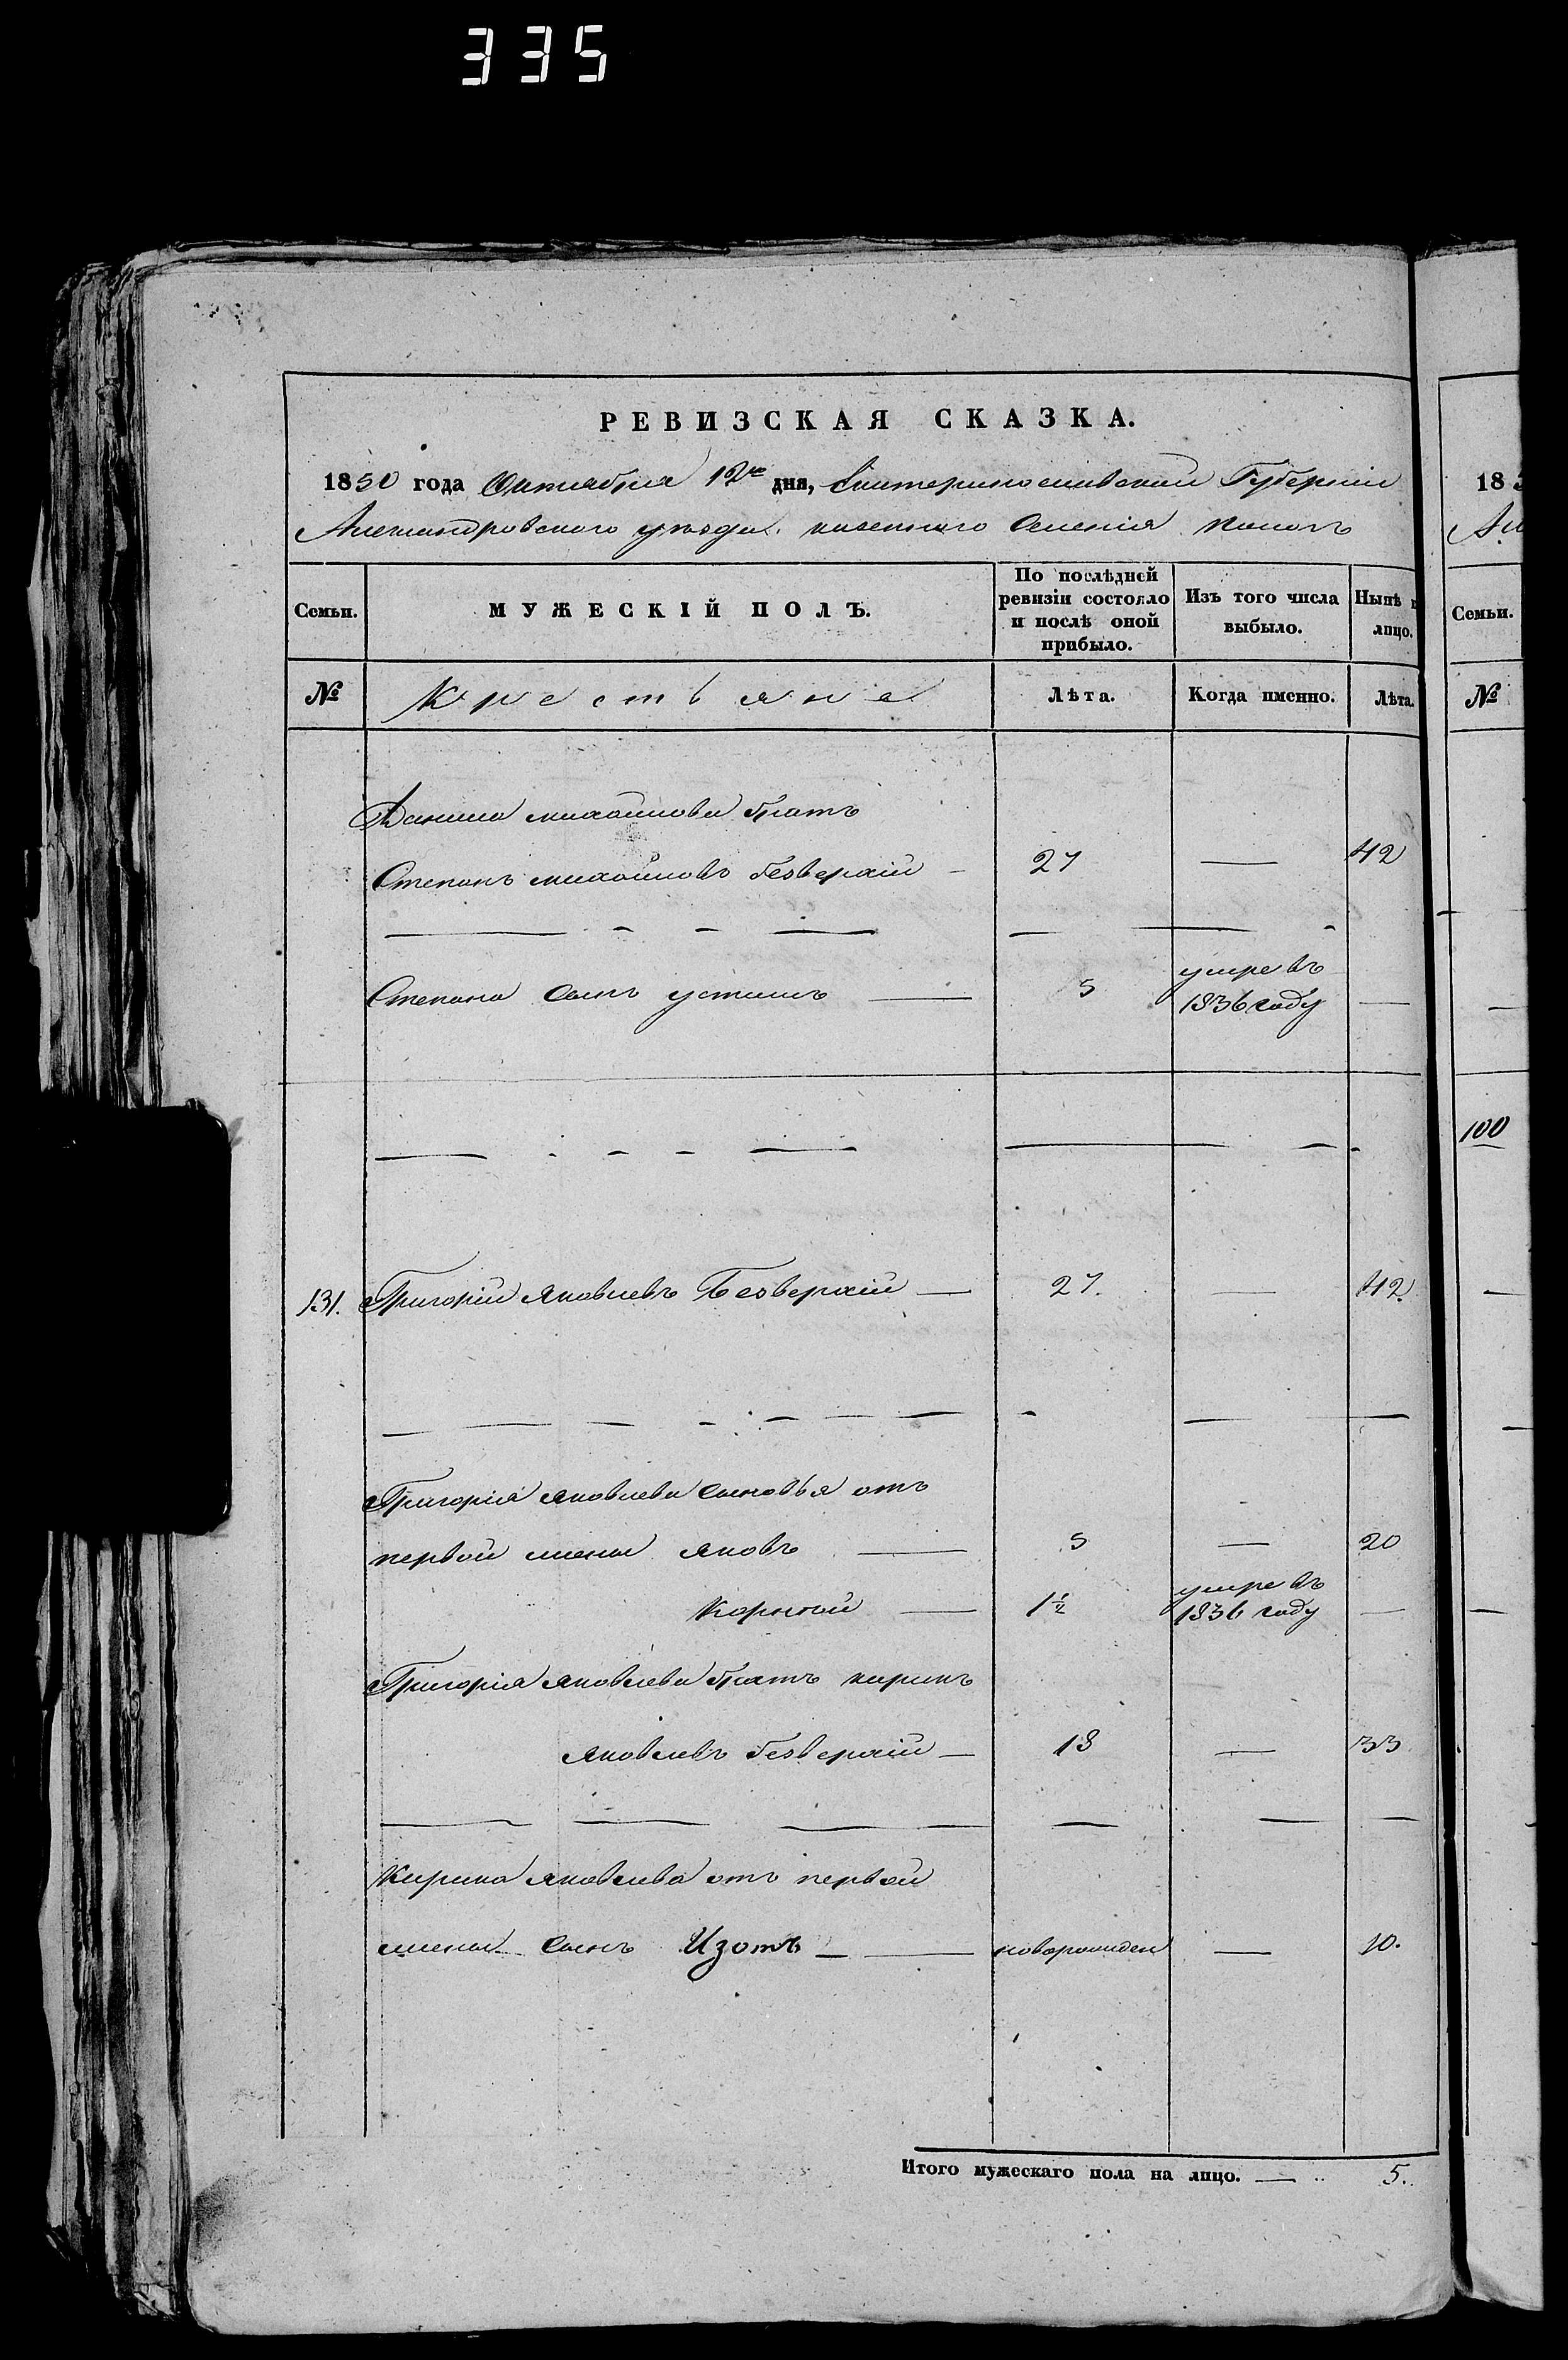 335
РЕВИЗСКАЯ СКАЗКА.
1850 года Октября 12го дня, Екатеринославской Губернии
Александровского уезда казенного Селенія Конскъ
Семьи.
МУЖЕСКІЙ ПОЛЪ.
По послѣдней ревизіи состояло и послѣ оной прибыло.
Изъ того числа выбыло.
Нынѣ
лицо.
№
Крестьяне
Лѣта.
Когда именно.
Лѣта.
Данила михайлова братъ
Степанъ михайловъ безверхій 27 — 42
Степана Сынъ устимъ — 5 умре въ 1836 году —
131. Григорій Яковлевъ Безверхій — 27. — 42.
Григорія Яковлева Сыновья отъ
первой жены Яковъ — 5 — 20
Корней — 1½ умре въ 1836 году —
Григорія Яковлева братъ кирикъ
Яковлевъ безверхій — 18 — 33
Кирика Яковлева отъ первой
жены Сынъ Изотъ — новорожден — 10.
Итого мужескаго пола на лицо. — 5.
18
Семьи.
№
100